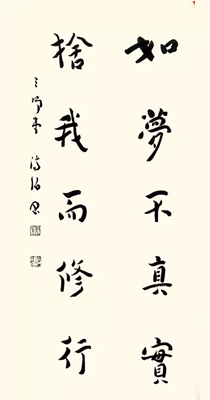 如夢不真實
捨我而修行